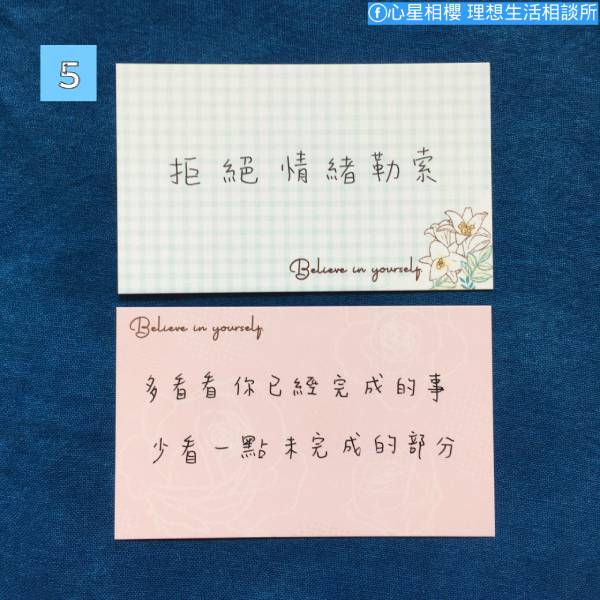 心星相櫻 理想生活相談所
5
拒絕情緒勒索
Believe in yourself
Believe in yourself
多看看你已經完成的事
少看一點未完成的部分